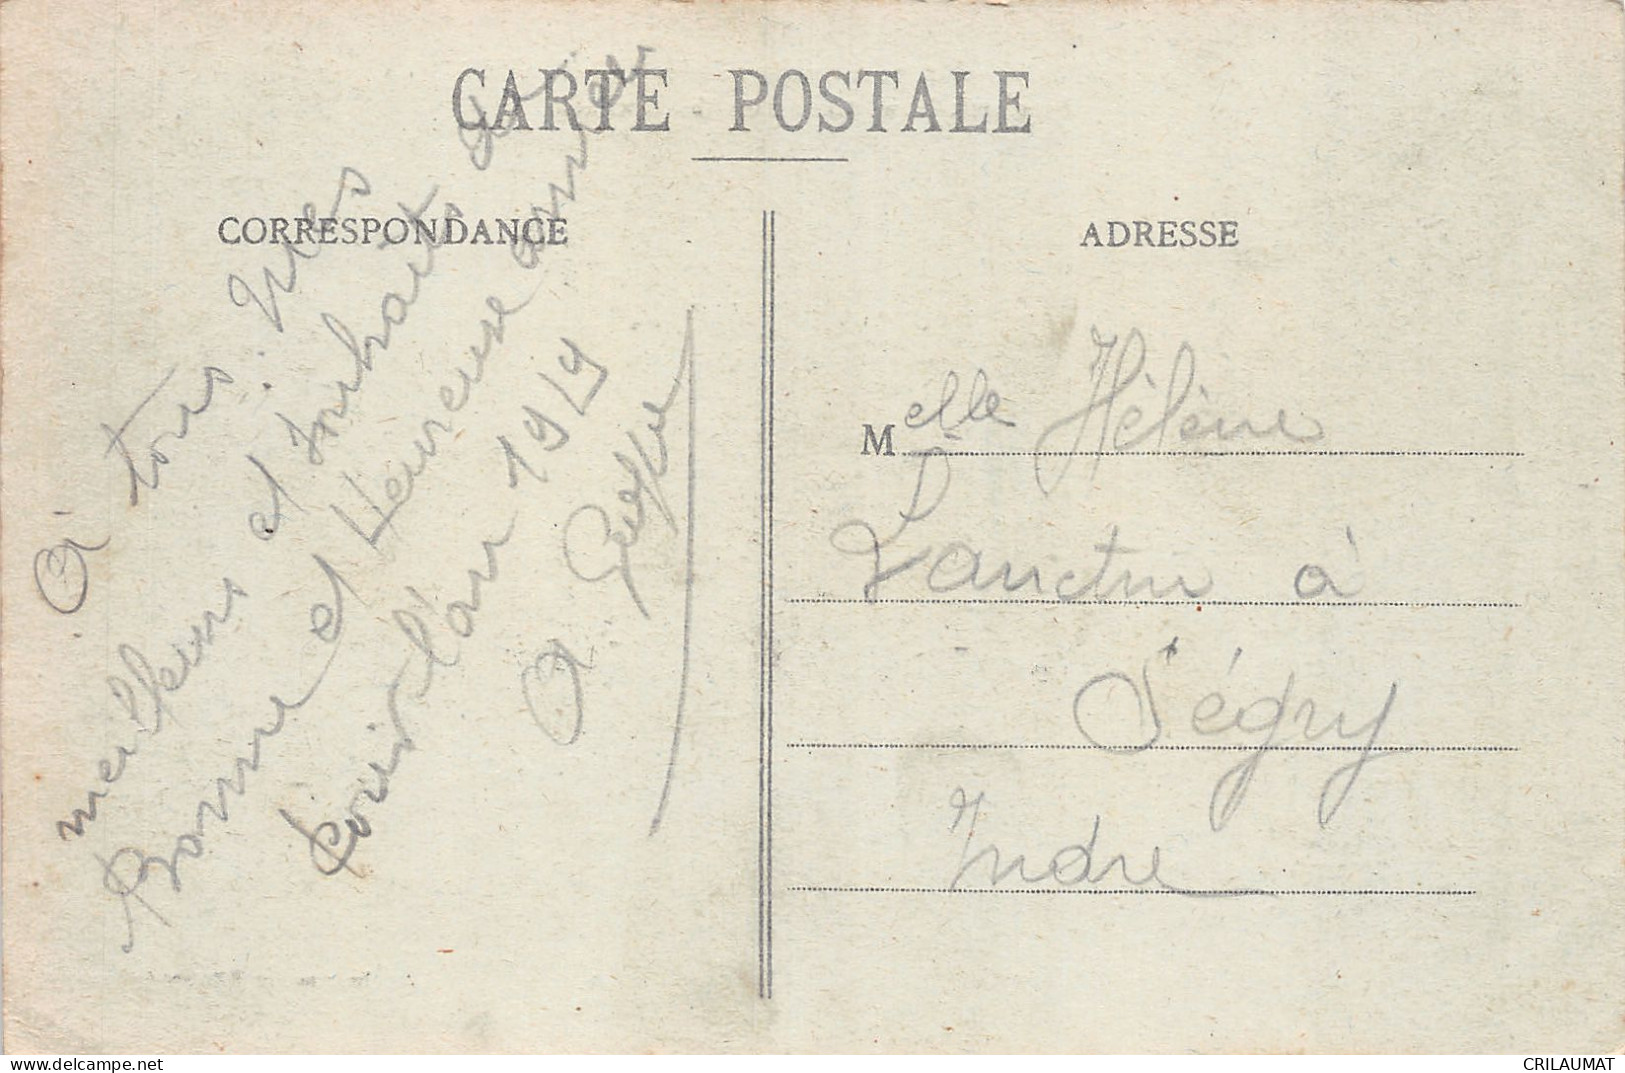 CARTE POSTALE
CORRESPONDANCE
A tous. Mes
meilleurs et souhaits de
Bonne et Heureuse année
pour l'an 1919
A
ADRESSE
Melle Hélène
à
Ségry
Indre
www.delcampe.net
CRILAUMAT